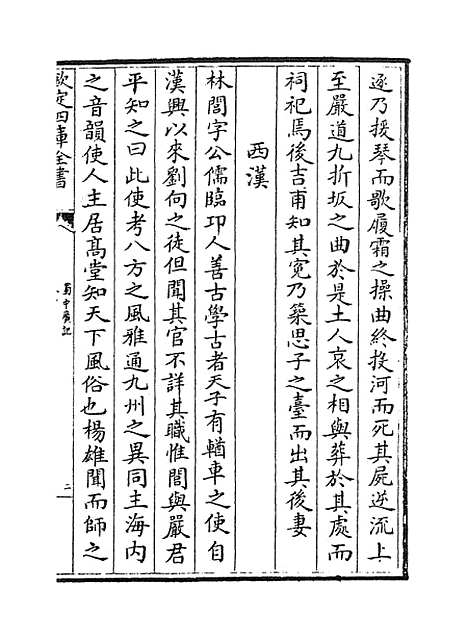 逐乃援琴而歌履霜之操曲終投河而死其屍逆流上
至嚴道九折坂之曲於是土人哀之相與葬於其處而
祠祀焉後吉甫知其寃乃築思子之臺而出其後妻
西漢
林閭字公儒臨卭人善古學古者天子有輶車之使自
漢興以來劉向之徒但聞其官不詳其職惟閭與嚴君
平知之曰此使考八方之風雅通九州之異同主海内
之音韻使人主居高堂知天下風俗也楊雄聞而師之
欽定四庫全書
蜀中廣記
二